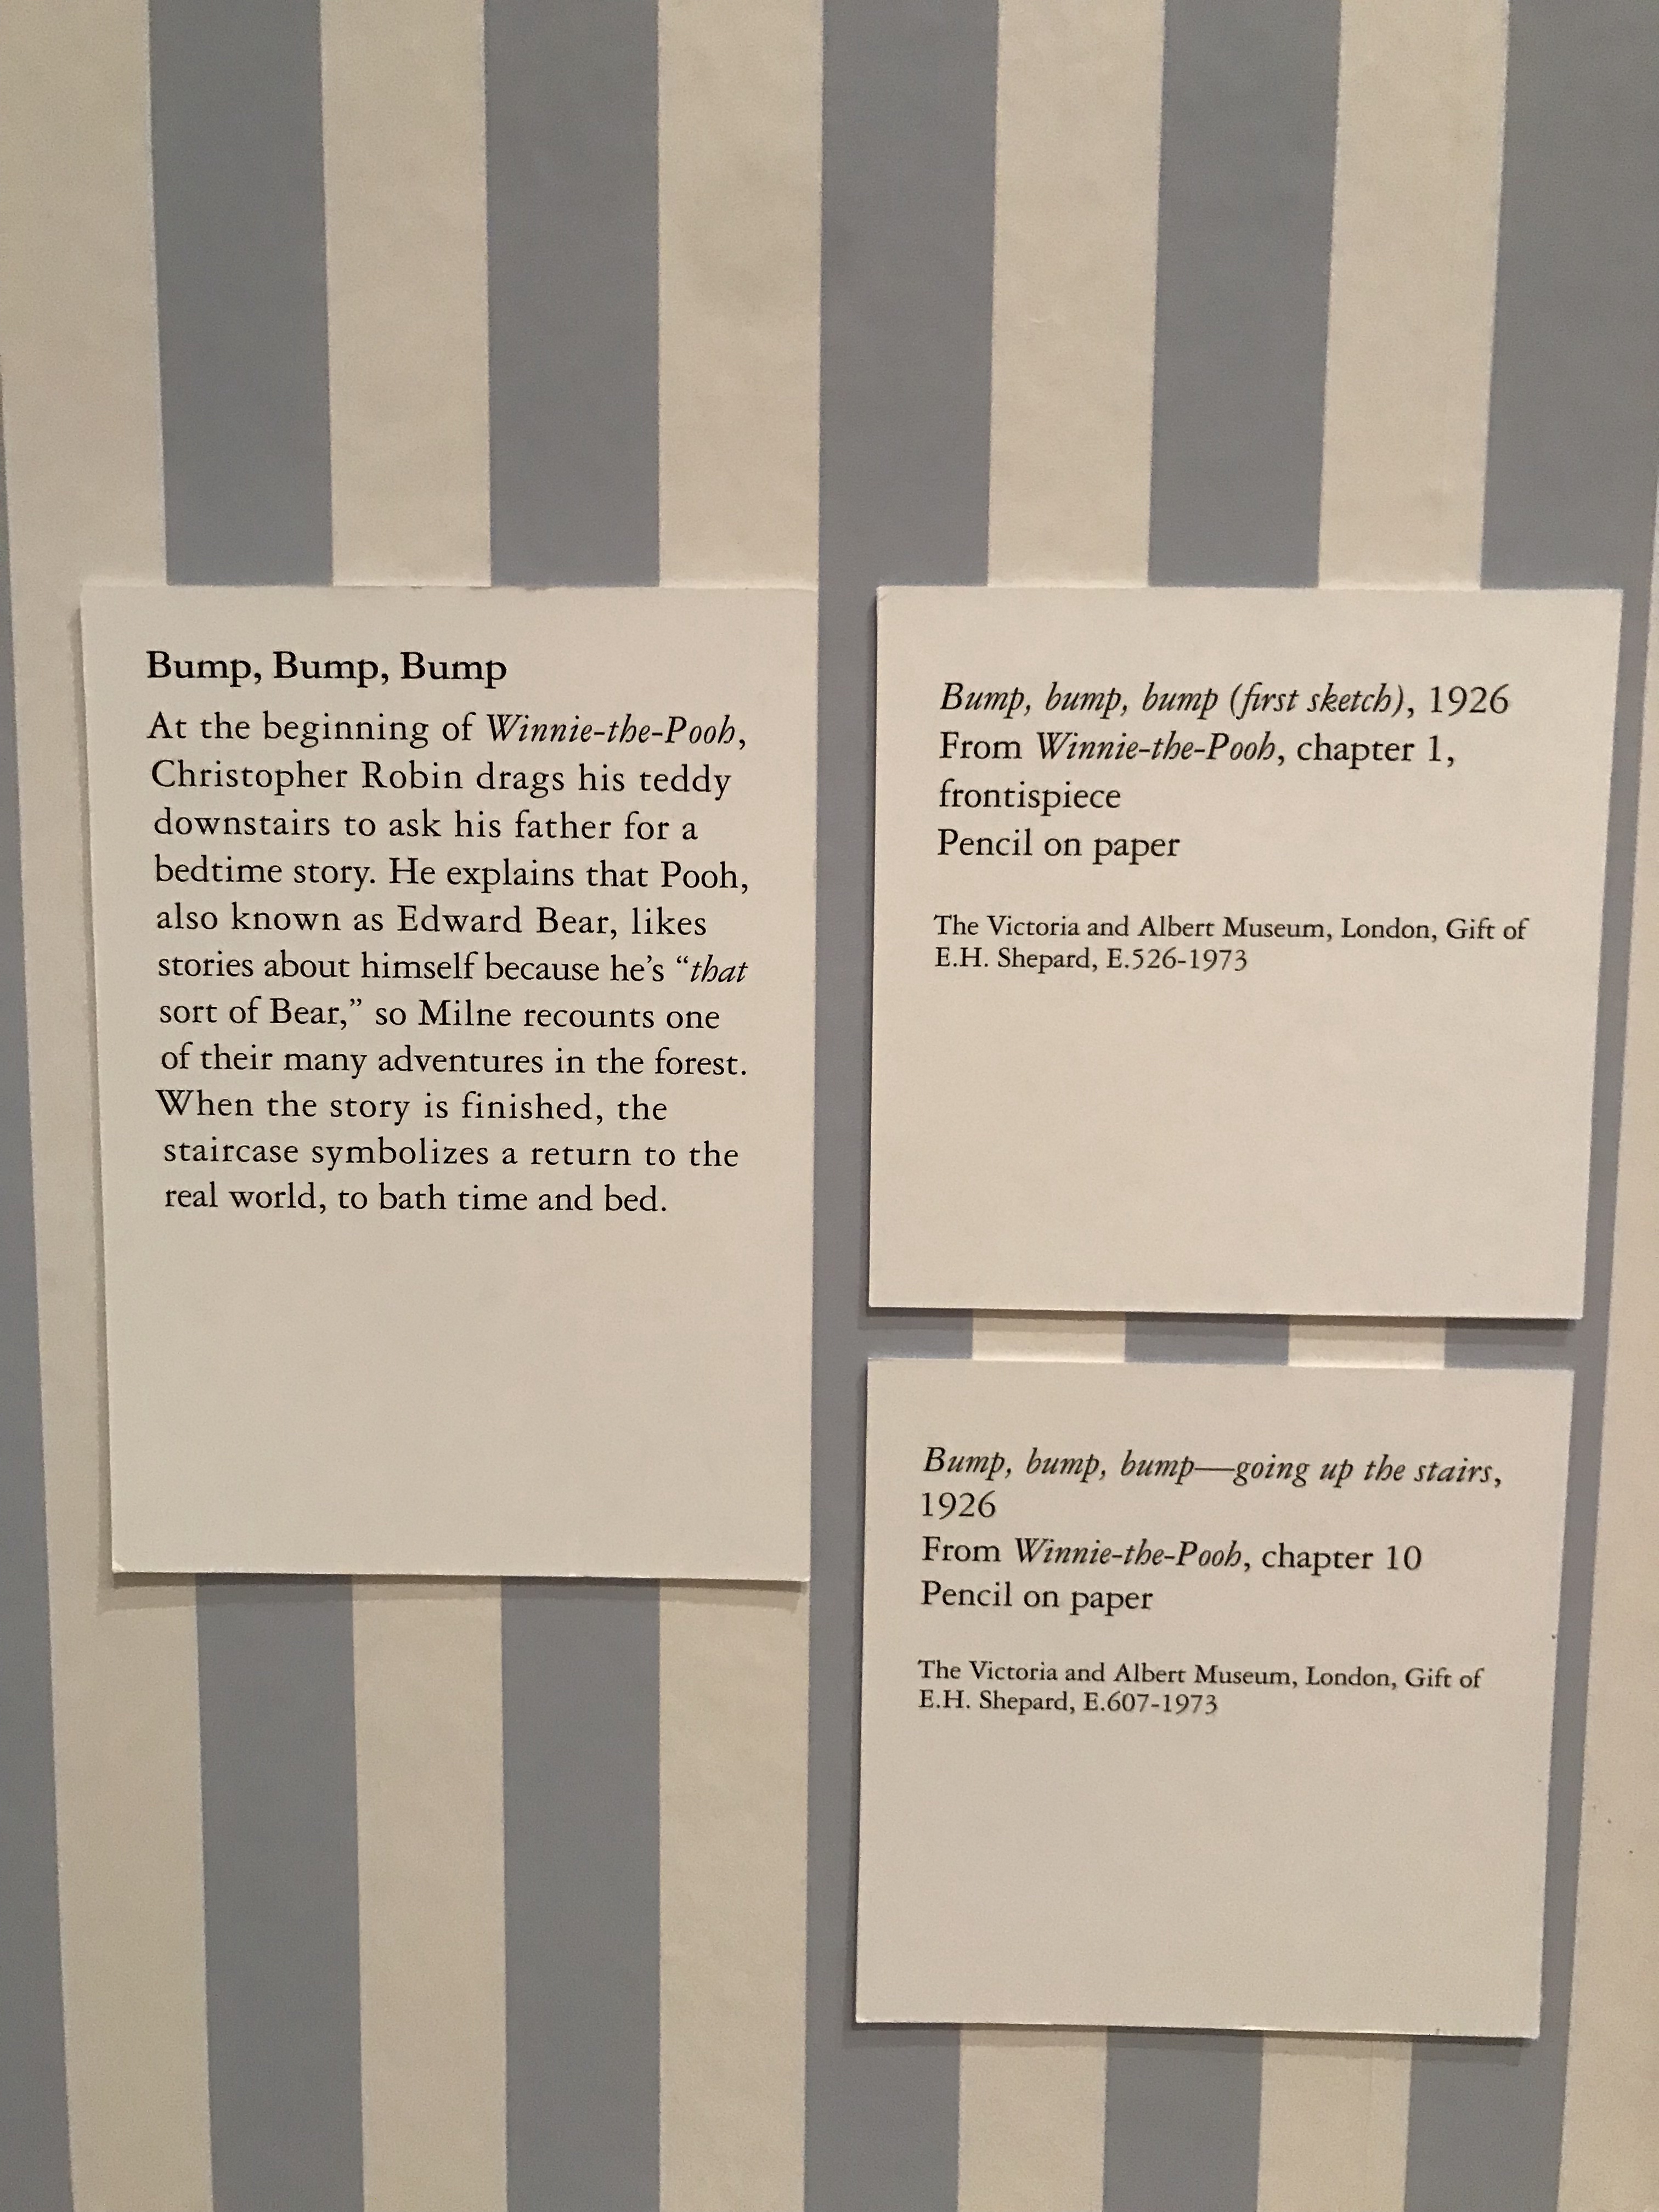 Bump, Bump, Bump
At the beginning of Winnie-the-Pooh,
Christopher Robin drags his teddy
downstairs to ask his father for a
bedtime story. He explains that Pooh,
also known as Edward Bear, likes
stories about himself because he’s “that
sort of Bear,” so Milne recounts one
of their many adventures in the forest.
When the story is finished, the
staircase symbolizes a return to the
real world, to bath time and bed.
Bump, bump, bump (first sketch), 1926
From Winnie-the-Pooh, chapter 1,
frontispiece
Pencil on paper
The Victoria and Albert Museum, London, Gift of
E.H. Shepard, E.526-1973
Bump, bump, bump—going up the stairs,
1926
From Winnie-the-Pooh, chapter 10
Pencil on paper
The Victoria and Albert Museum, London, Gift of
E.H. Shepard, E.607-1973